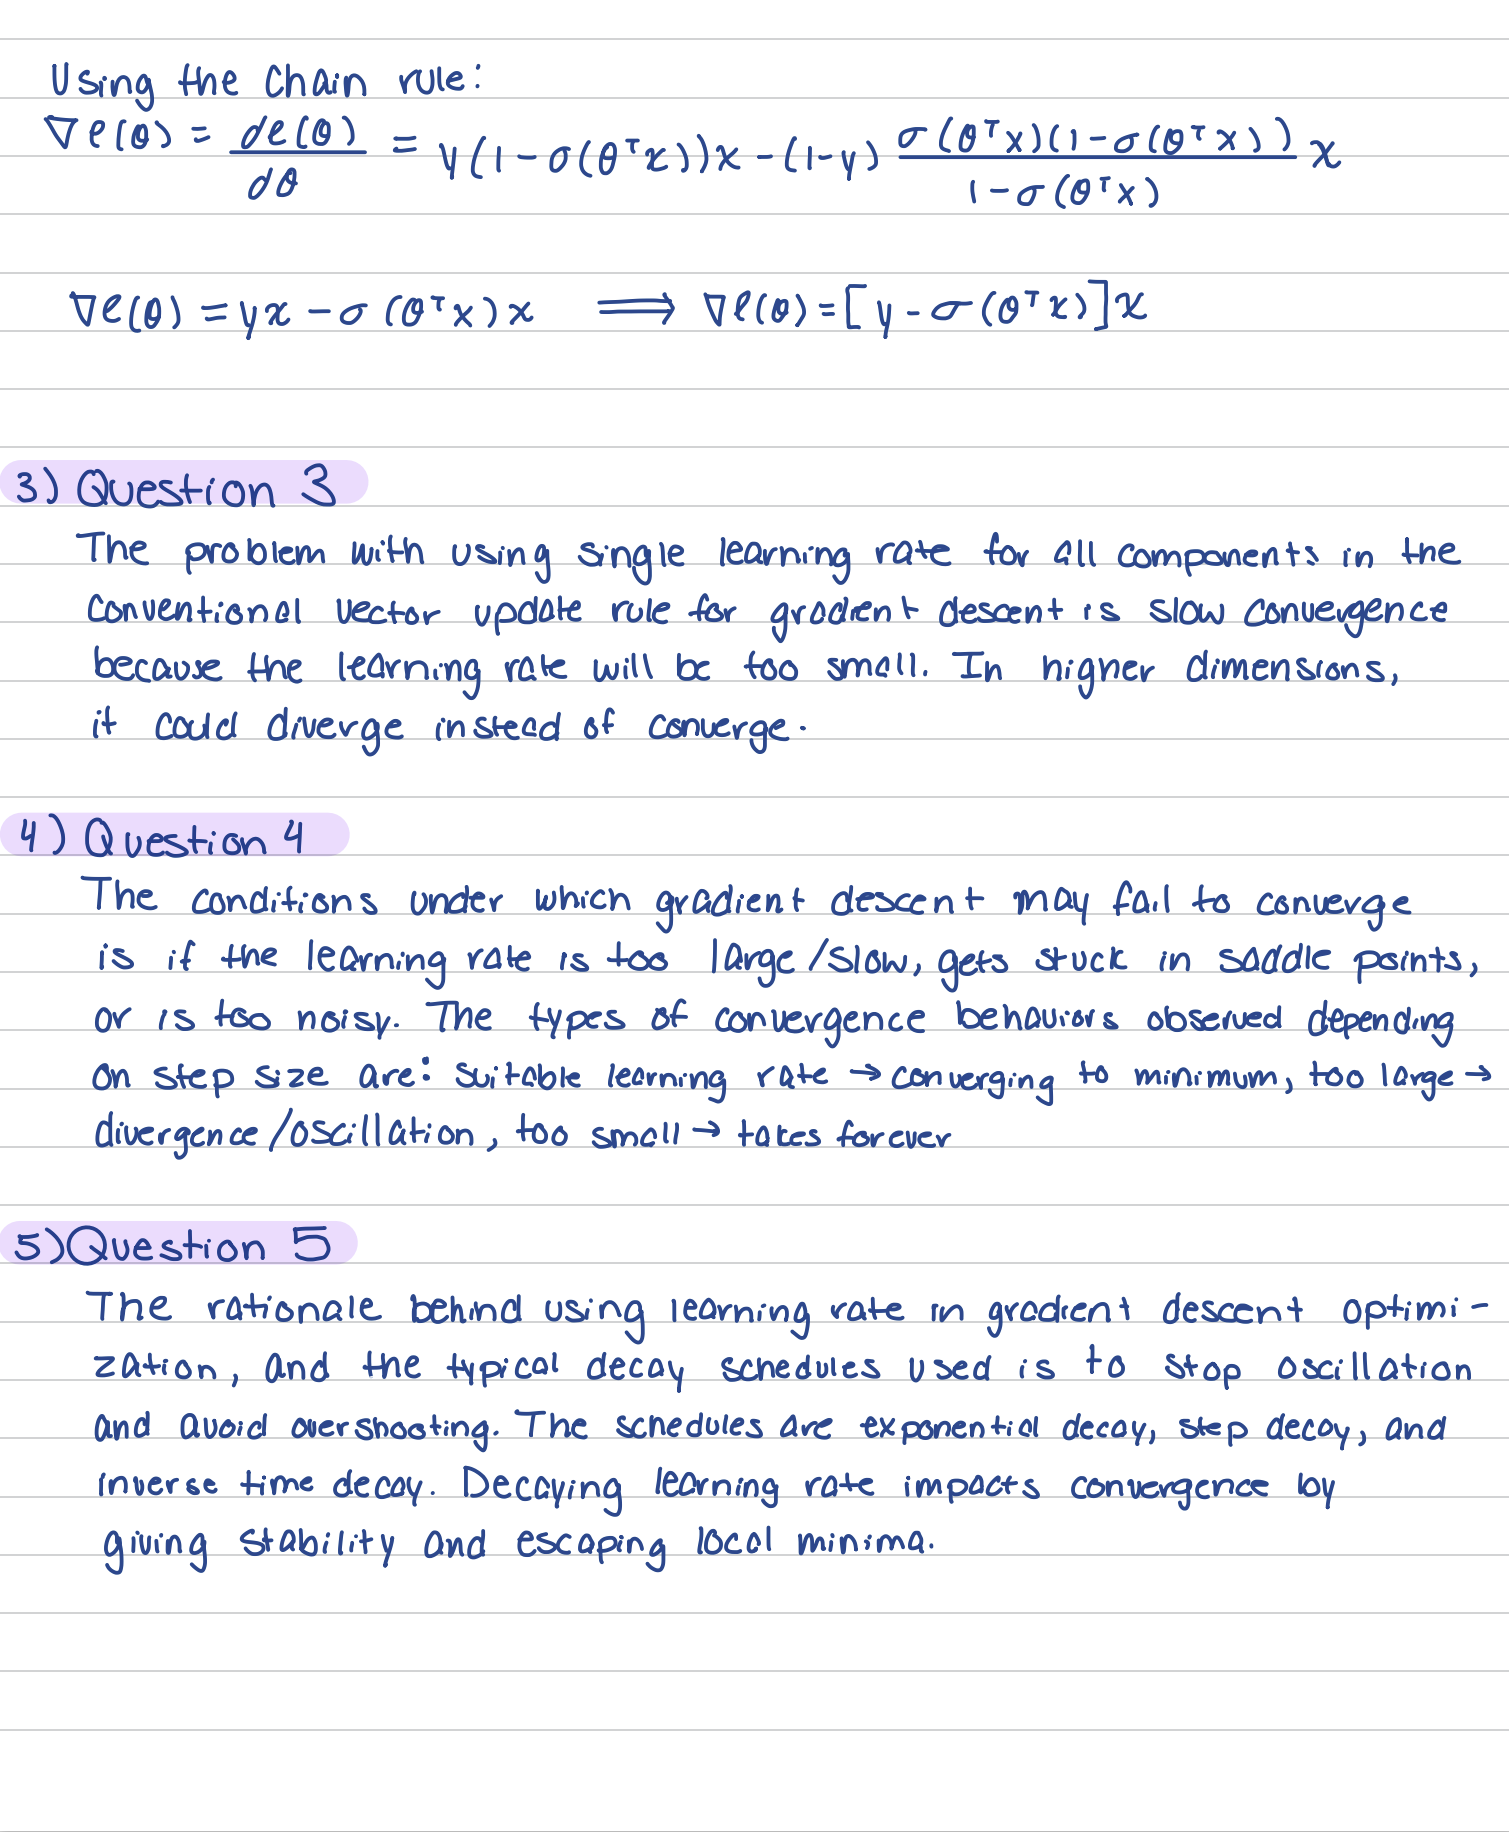 Using the Chain rule:
∇ℓ(θ) = dℓ(θ)/dθ = y(1-σ(θᵀx))x - (1-y) σ(θᵀx)(1-σ(θᵀx))/1-σ(θᵀx) x
∇ℓ(θ) = yx - σ(θᵀx)x ⟹ ∇ℓ(θ) = [y - σ(θᵀx)]x
3) Question 3
The problem with using single learning rate for all components in the
conventional vector update rule for gradient descent is slow convergence
because the learning rate will be too small. In higher dimensions,
it could diverge instead of converge.
4) Question 4
The conditions under which gradient descent may fail to converge
is if the learning rate is too large/slow, gets stuck in saddle points,
or is too noisy. The types of convergence behaviors observed depending
on step size are: suitable learning rate → converging to minimum, too large →
divergence/oscillation, too small → takes forever
5) Question 5
The rationale behind using learning rate in gradient descent optimi-
zation, and the typical decay schedules used is to stop oscillation
and avoid overshooting. The schedules are exponential decay, step decay, and
inverse time decay. Decaying learning rate impacts convergence by
giving stability and escaping local minima.